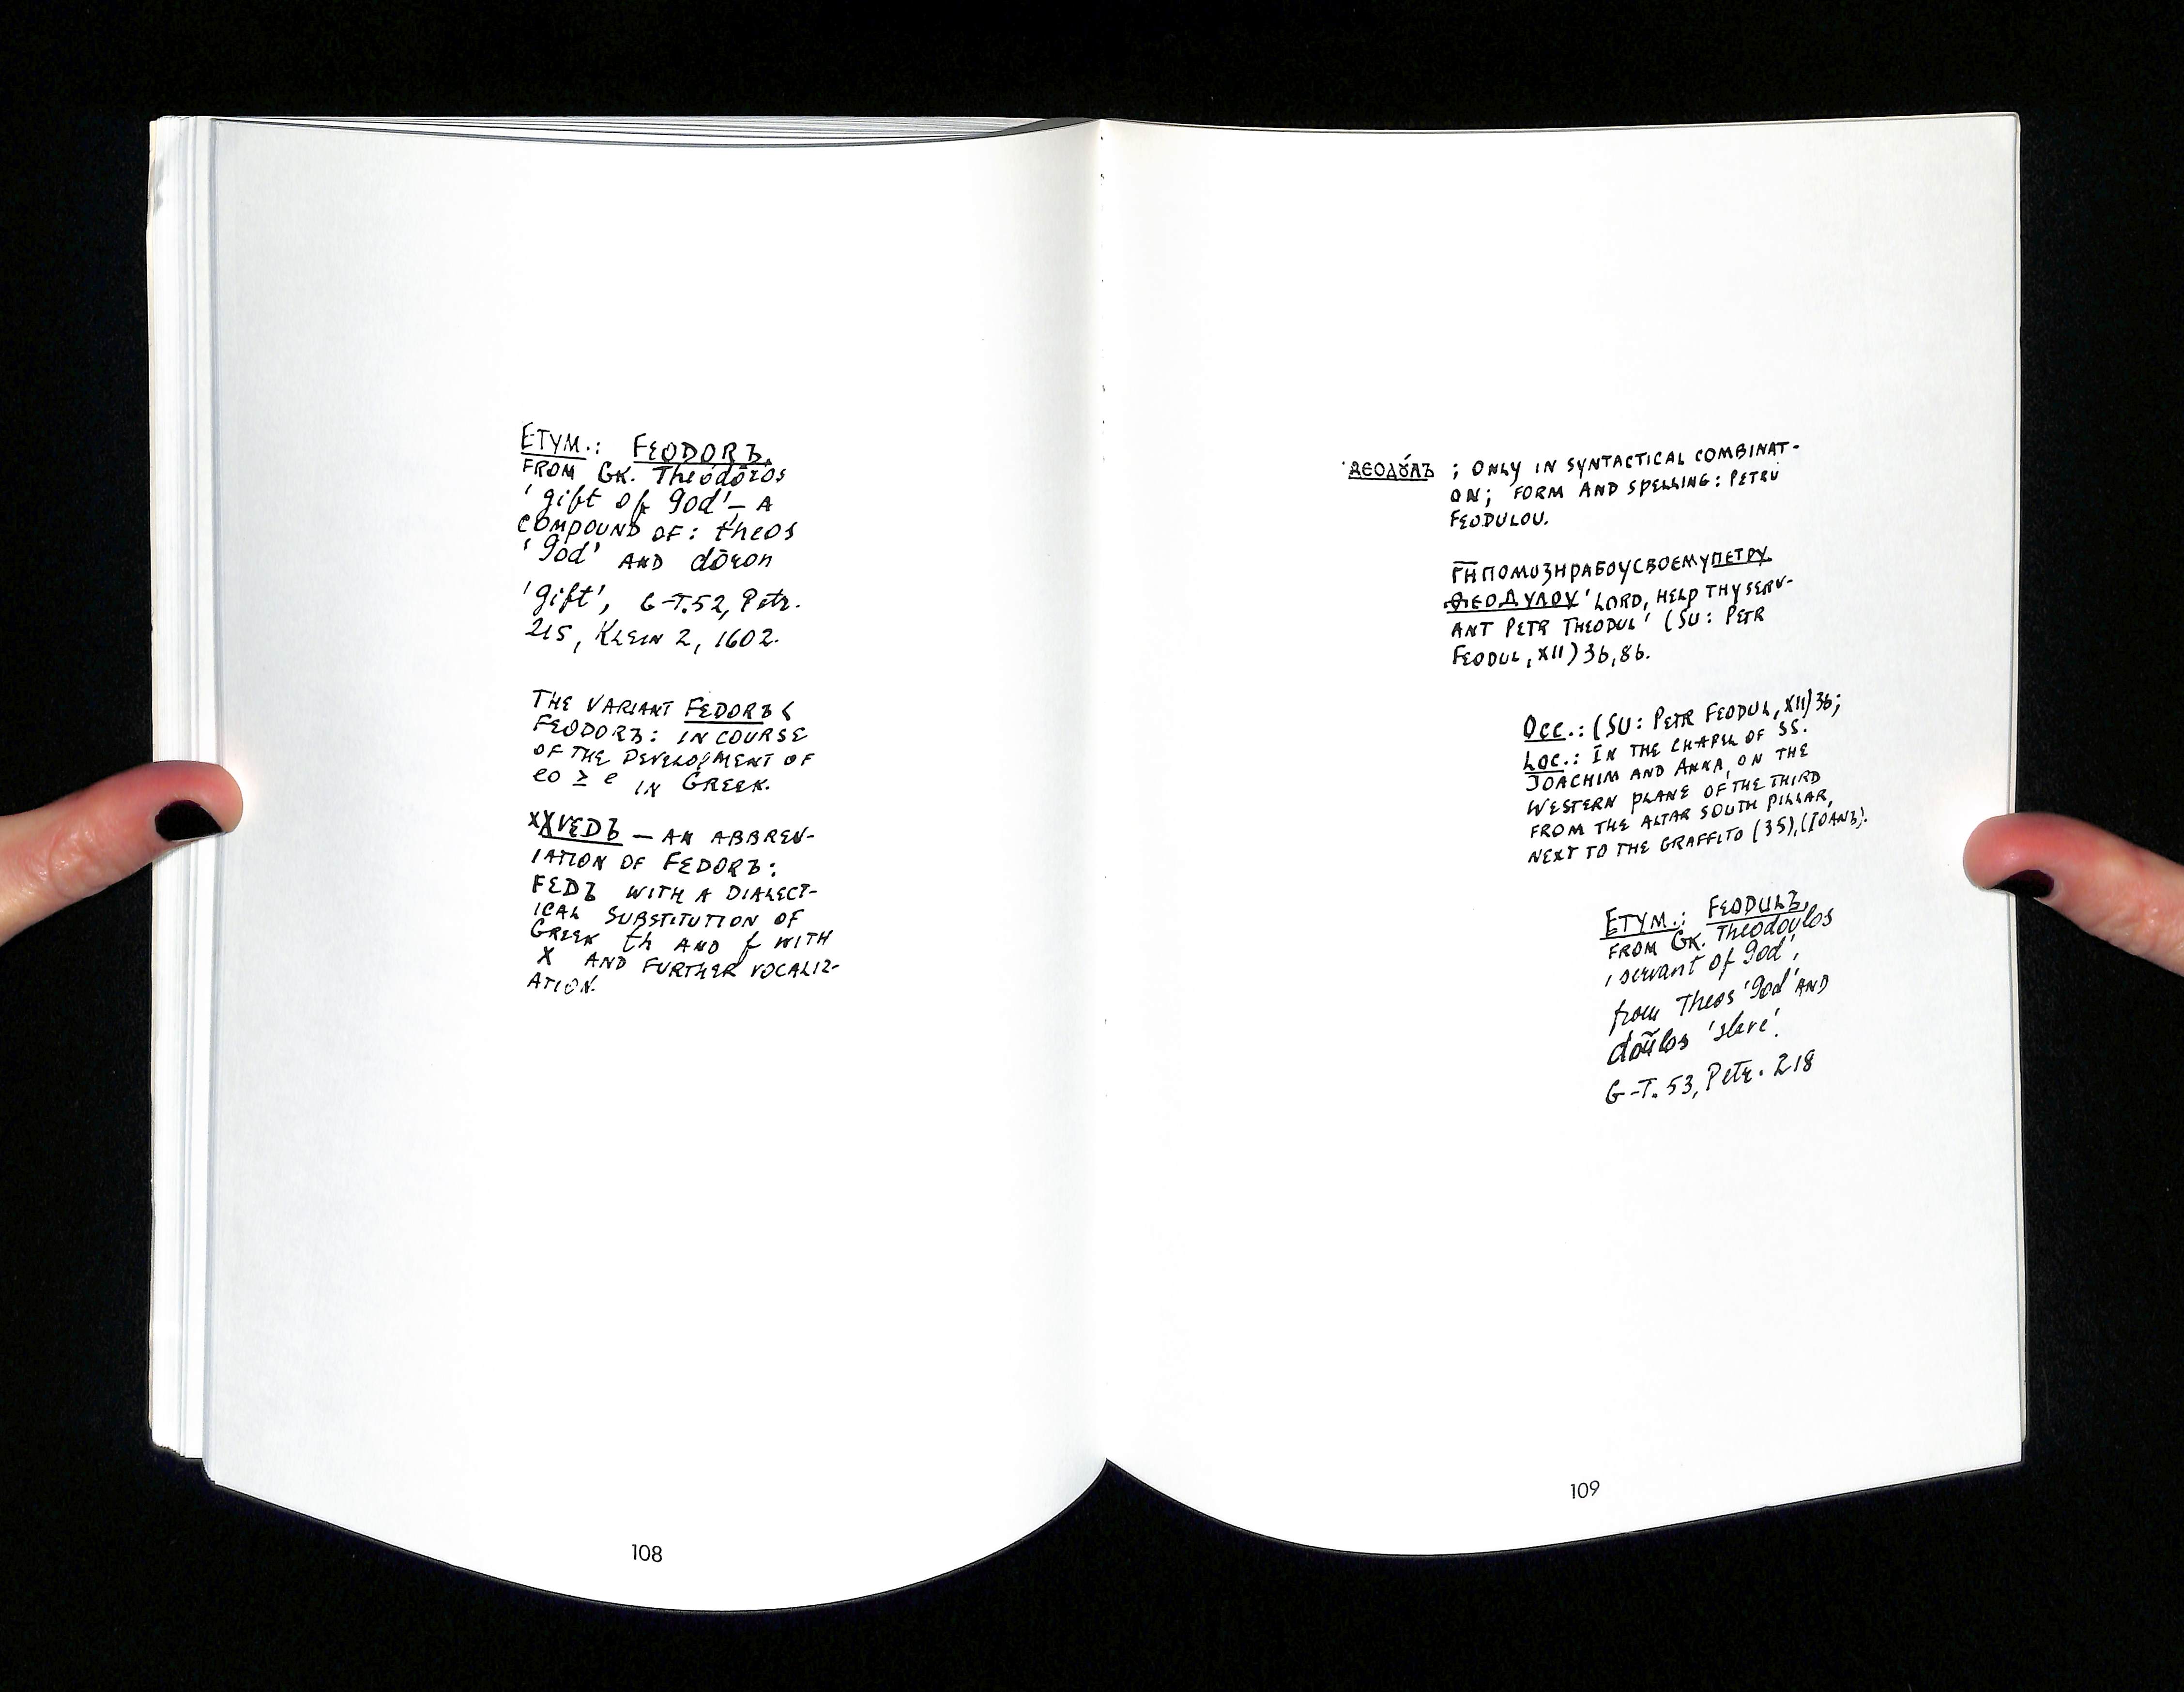 ETYM.: FEODORЪ,
FROM GK. Theódōros
'gift of god' – A
COMPOUND OF: theos
'god' AND dōron
'gift', G-T.52, Petr.
215, KLEIN 2, 1602.
THE VARIANT FEDORЪ <
FEODORЪ: IN COURSE
OF THE DEVELOPMENT OF
eo ≥ e IN GREEK.
XXVEDЪ – AN ABBREV-
IATION OF FEDORЪ:
FEDЪ WITH A DIALECT-
ICAL SUBSTITUTION OF
GREEK th AND f WITH
X AND FURTHER VOCALIZ-
ATION.
108
; ONLY IN SYNTACTICAL COMBINAT-
ON; FORM AND SPELLING: PETRU
FEODULOU.
ГНПОМОЗНРАБОУСВОЕМУПЕТРУ
ѲЕОДУЛОУ 'LORD, HELP THY SERV-
ANT PETR THEODUL' (SU: PETR
FEODUL, XII) 36, 86.
OCC.: (SU: PETR FEODUL, XII) 36;
LOC.: IN THE CHAPEL OF SS.
JOACHIM AND ANNA, ON THE
WESTERN PLANE OF THE THIRD
FROM THE ALTAR SOUTH PILLAR,
NEXT TO THE GRAFFITO (35), (IOANЪ).
ETYM.: FEODULЪ,
FROM GK. Theodoulos
'servant of god',
from Theos 'god' AND
doũlos 'slave'.
G-T. 53, Petr. 218
109